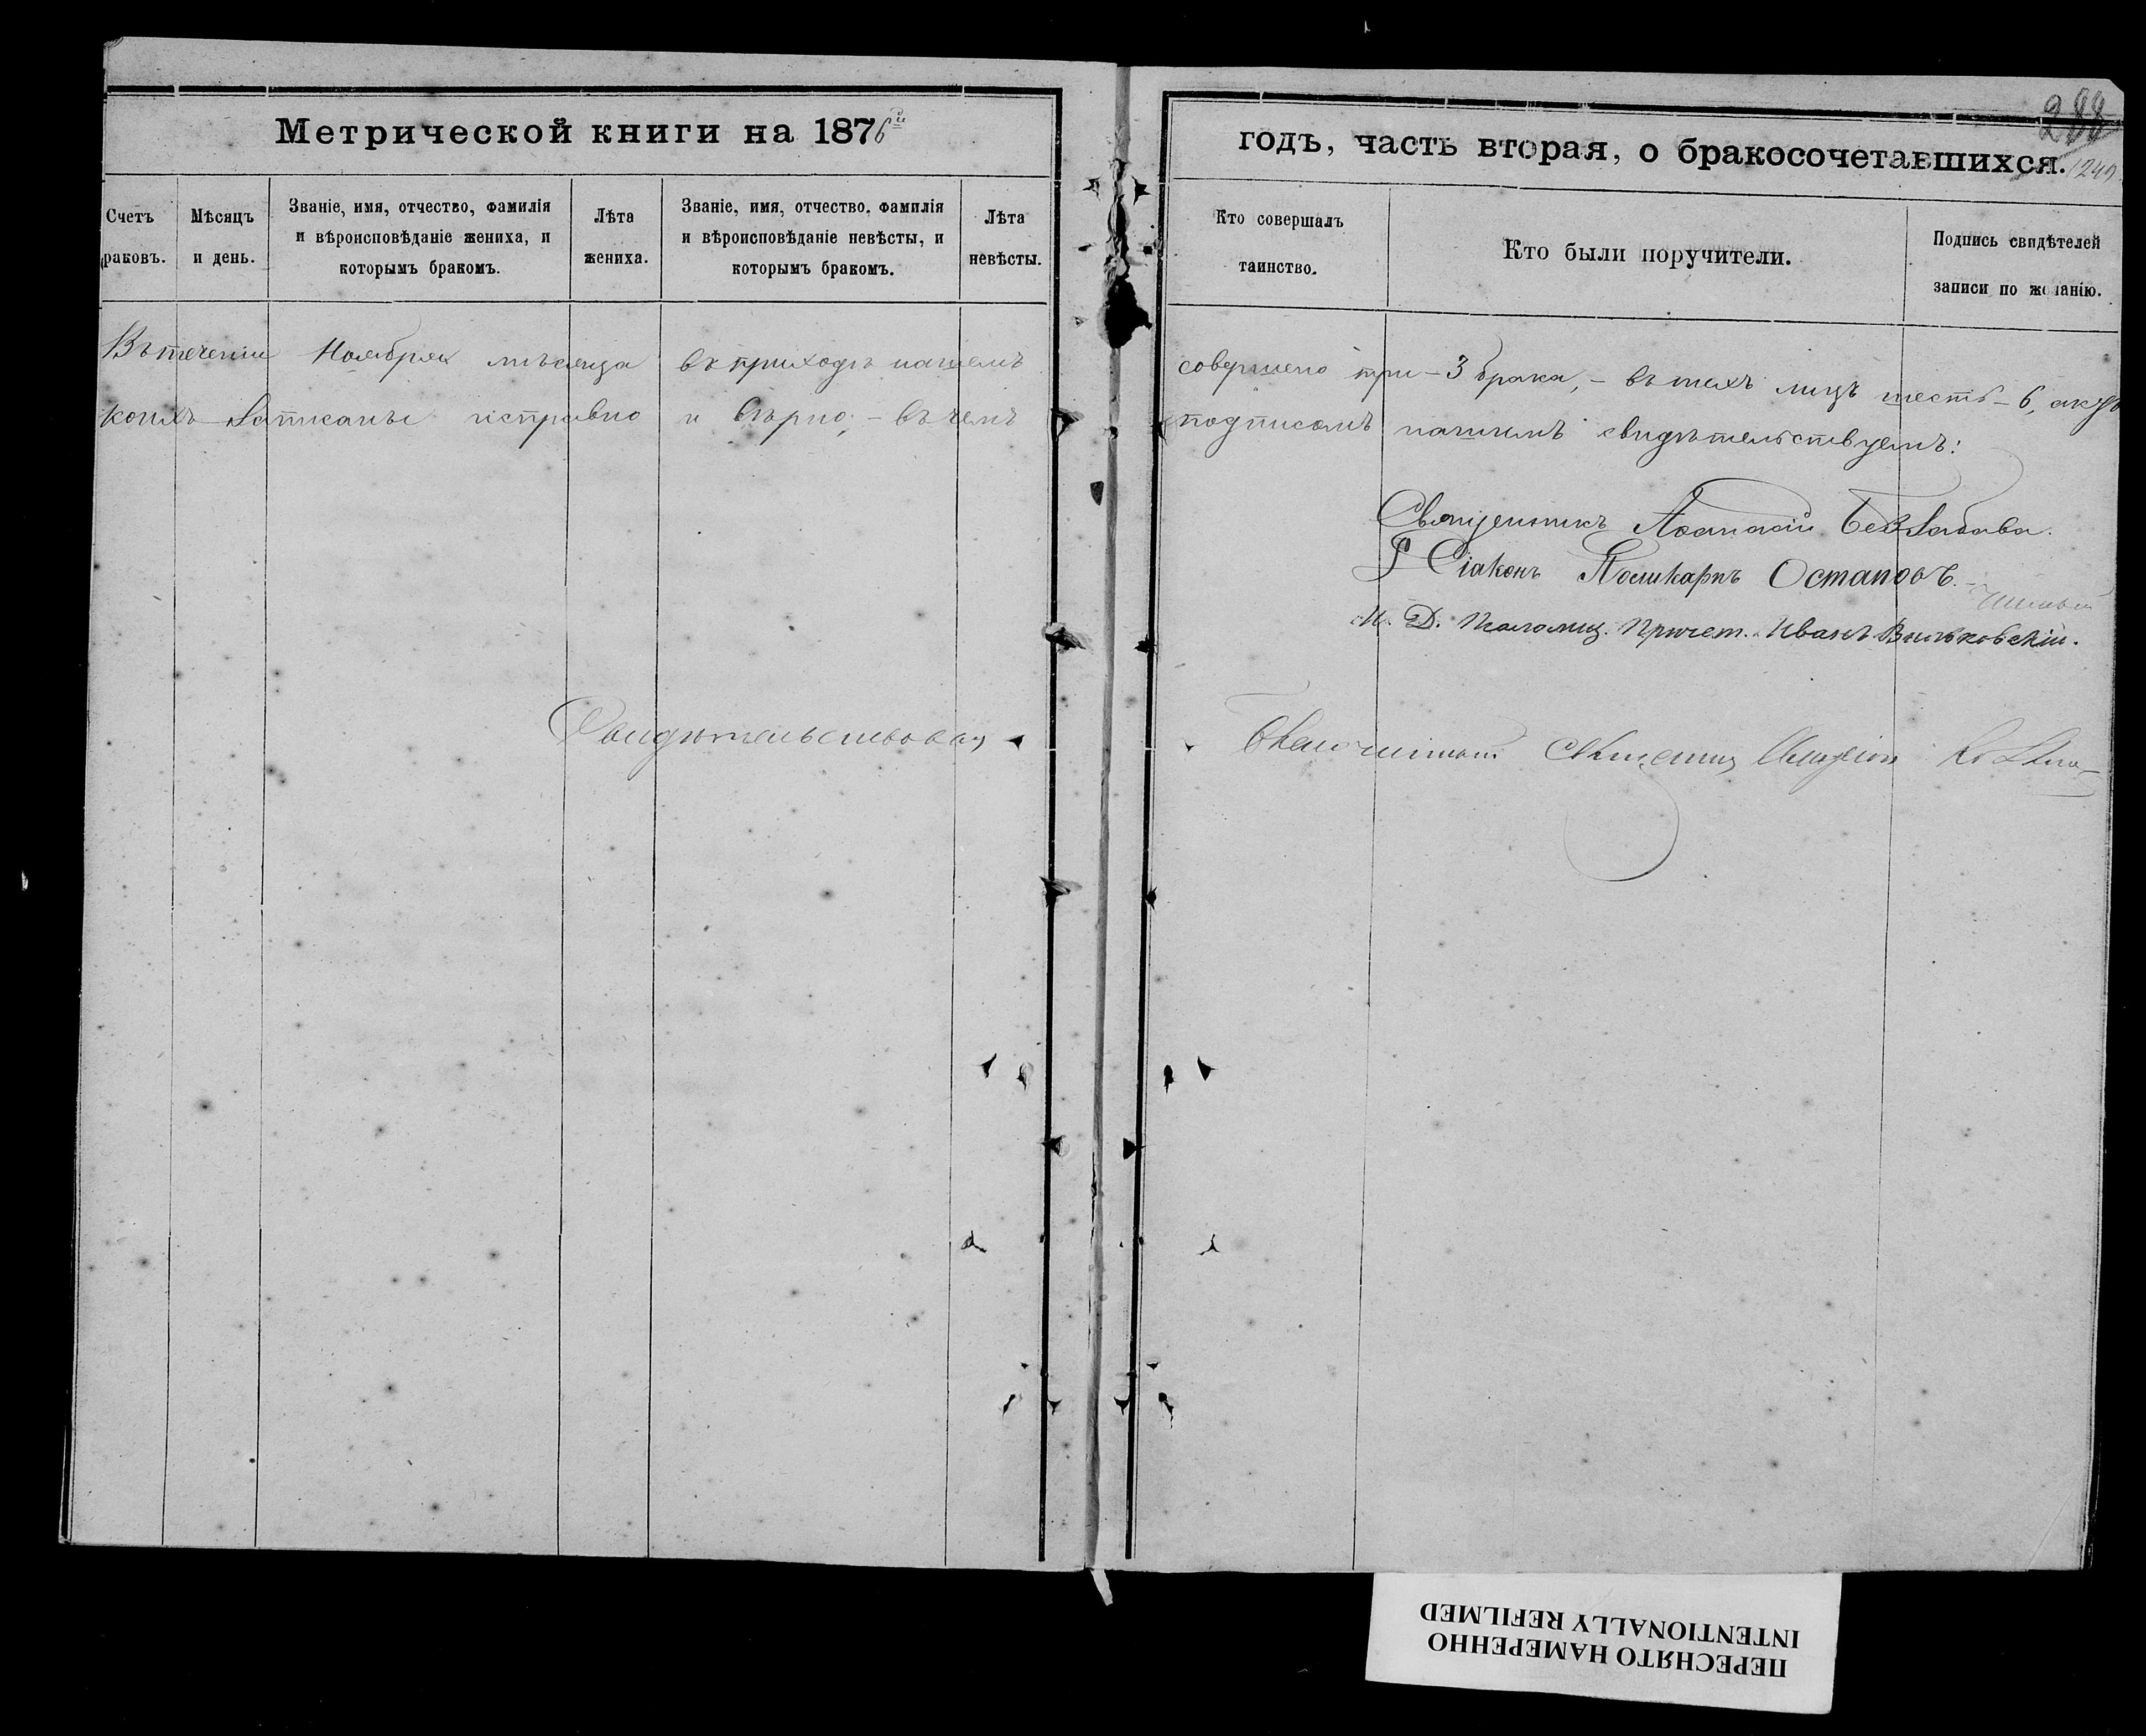 288
1249
Метрической книги на 1876й годъ, часть вторая, о бракосочетавшихся.
Счетъ раковъ.
Мѣсяцъ и день.
Званіе, имя, отчество, фамилія и вѣроисповѣданіе жениха, и которымъ бракомъ.
Лѣта жениха.
Званіе, имя, отчество, фамилія и вѣроисповѣданіе невѣсты, и которымъ бракомъ.
Лѣта невѣсты.
Кто совершалъ таинство.
Кто были поручители.
Подпись свидѣтелей записи по желанію.
Въ теченіи Ноября мѣсяца въ приходѣ нашемъ совершено три - 3 брака, - въ нихъ лицъ шесть - 6,
коихъ записаны исправно и вѣрно; - въ чемъ подписомъ нашимъ свидѣтельствуемъ:
Священникъ Аѳанасій Беззабава.
Діаконъ Поликарпъ Остаповъ.
И. Д. Псаломщ. Причет. Иванъ Вильковскій.
Свидѣтельствовалъ Благочинный Священникъ
ПЕРЕСНЯТО НАМЕРЕННО
INTENTIONALLY REFILMED